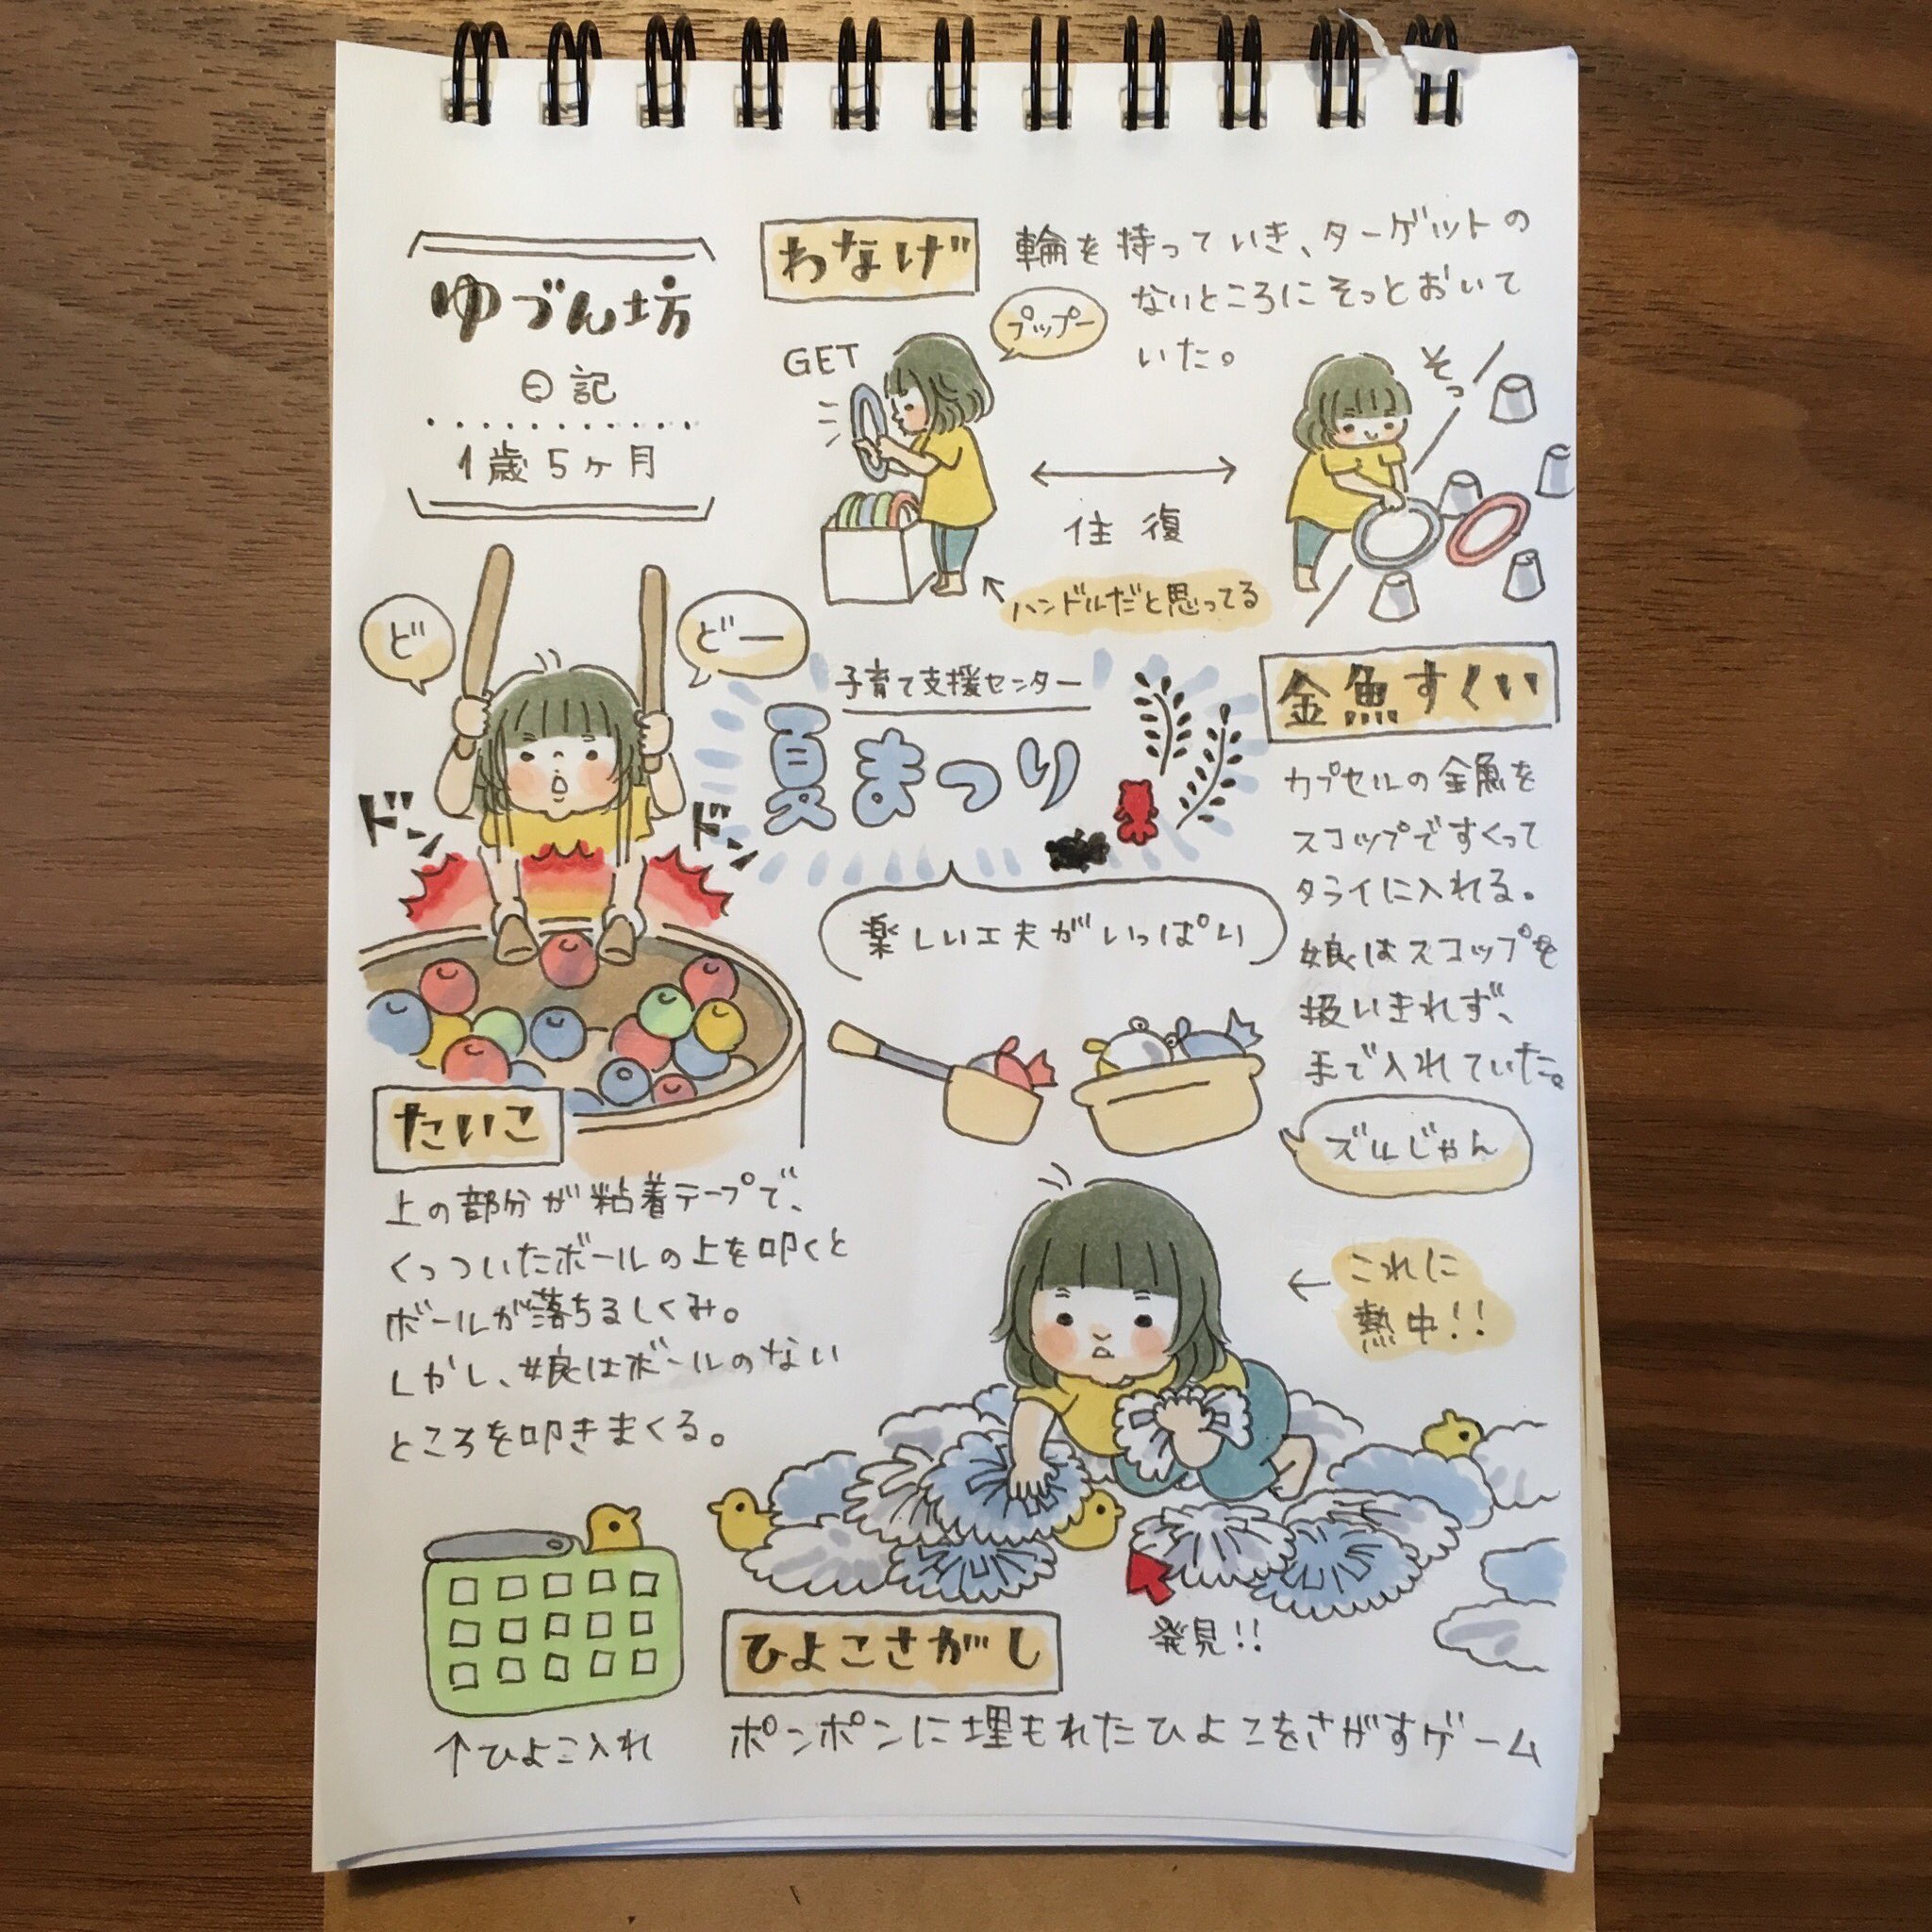 ゆづん坊
日記
1歳5ヶ月
わなげ
輪を持っていき、ターゲットの
ないところにそっとおいて
いた。
プップー
GET
そっ
往復
ハンドルだと思ってる
ど
どー
ドン
ドン
子育て支援センター
夏まつり
楽しい工夫がいっぱい
金魚すくい
カプセルの金魚を
スコップですくって
タライに入れる。
娘はスコップを
扱いきれず、
手で入れていた。
ズルじゃん
たいこ
上の部分が粘着テープで、
くっついたボールの上を叩くと
ボールが落ちるしくみ。
しかし、娘はボールのない
ところを叩きまくる。
これに
熱中!!
発見!!
ひよこさがし
ポンポンに埋もれたひよこをさがすゲーム
↑ひよこ入れ